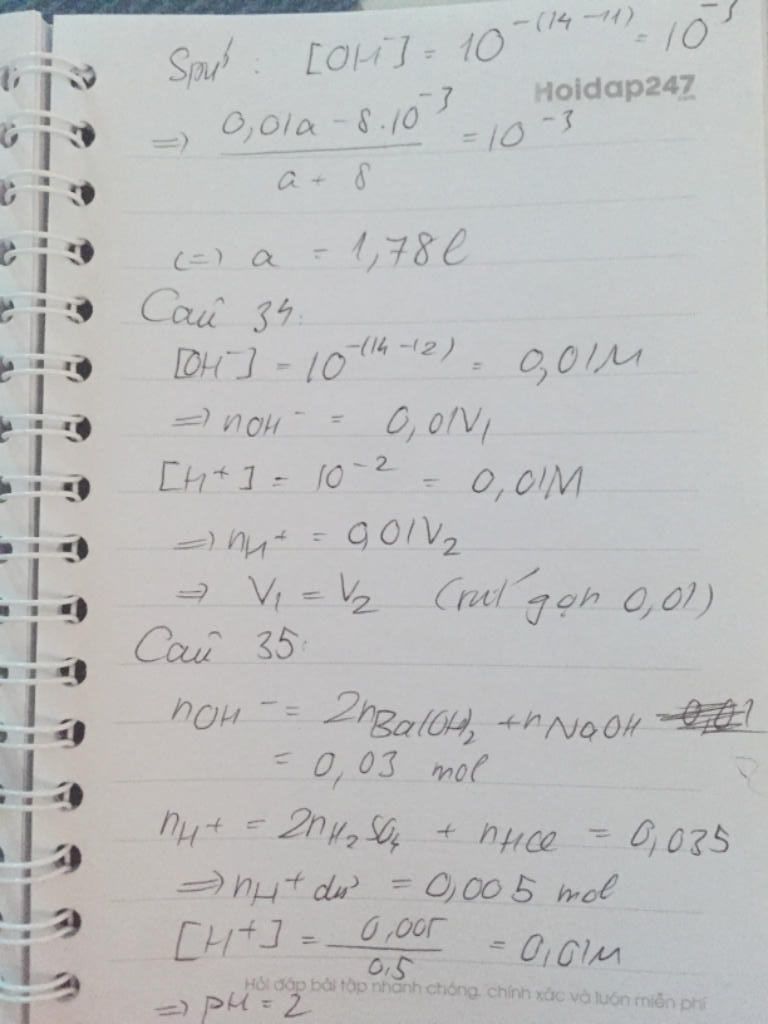 Spư : [OH⁻] = 10^-(14-11) = 10^-3
Hoidap247
.com
=> (0,01a - 8.10^-3)/(a + 8) = 10^-3
(=) a = 1,78l
Câu 34:
[OH⁻] = 10^-(14-12) = 0,01M
=> nOH⁻ = 0,01V₁
[H⁺] = 10^-2 = 0,01M
=> nH⁺ = 0,01V₂
=> V₁ = V₂ (rút gọn 0,01)
Câu 35:
nOH⁻ = 2nBa(OH)₂ + nNaOH
= 0,03 mol
nH⁺ = 2nH₂SO₄ + nHCl = 0,035
=> nH⁺ dư = 0,005 mol
[H⁺] = 0,005/0,5 = 0,01M
Hỏi đáp bài tập nhanh chóng, chính xác và luôn miễn phí
=> pH = 2